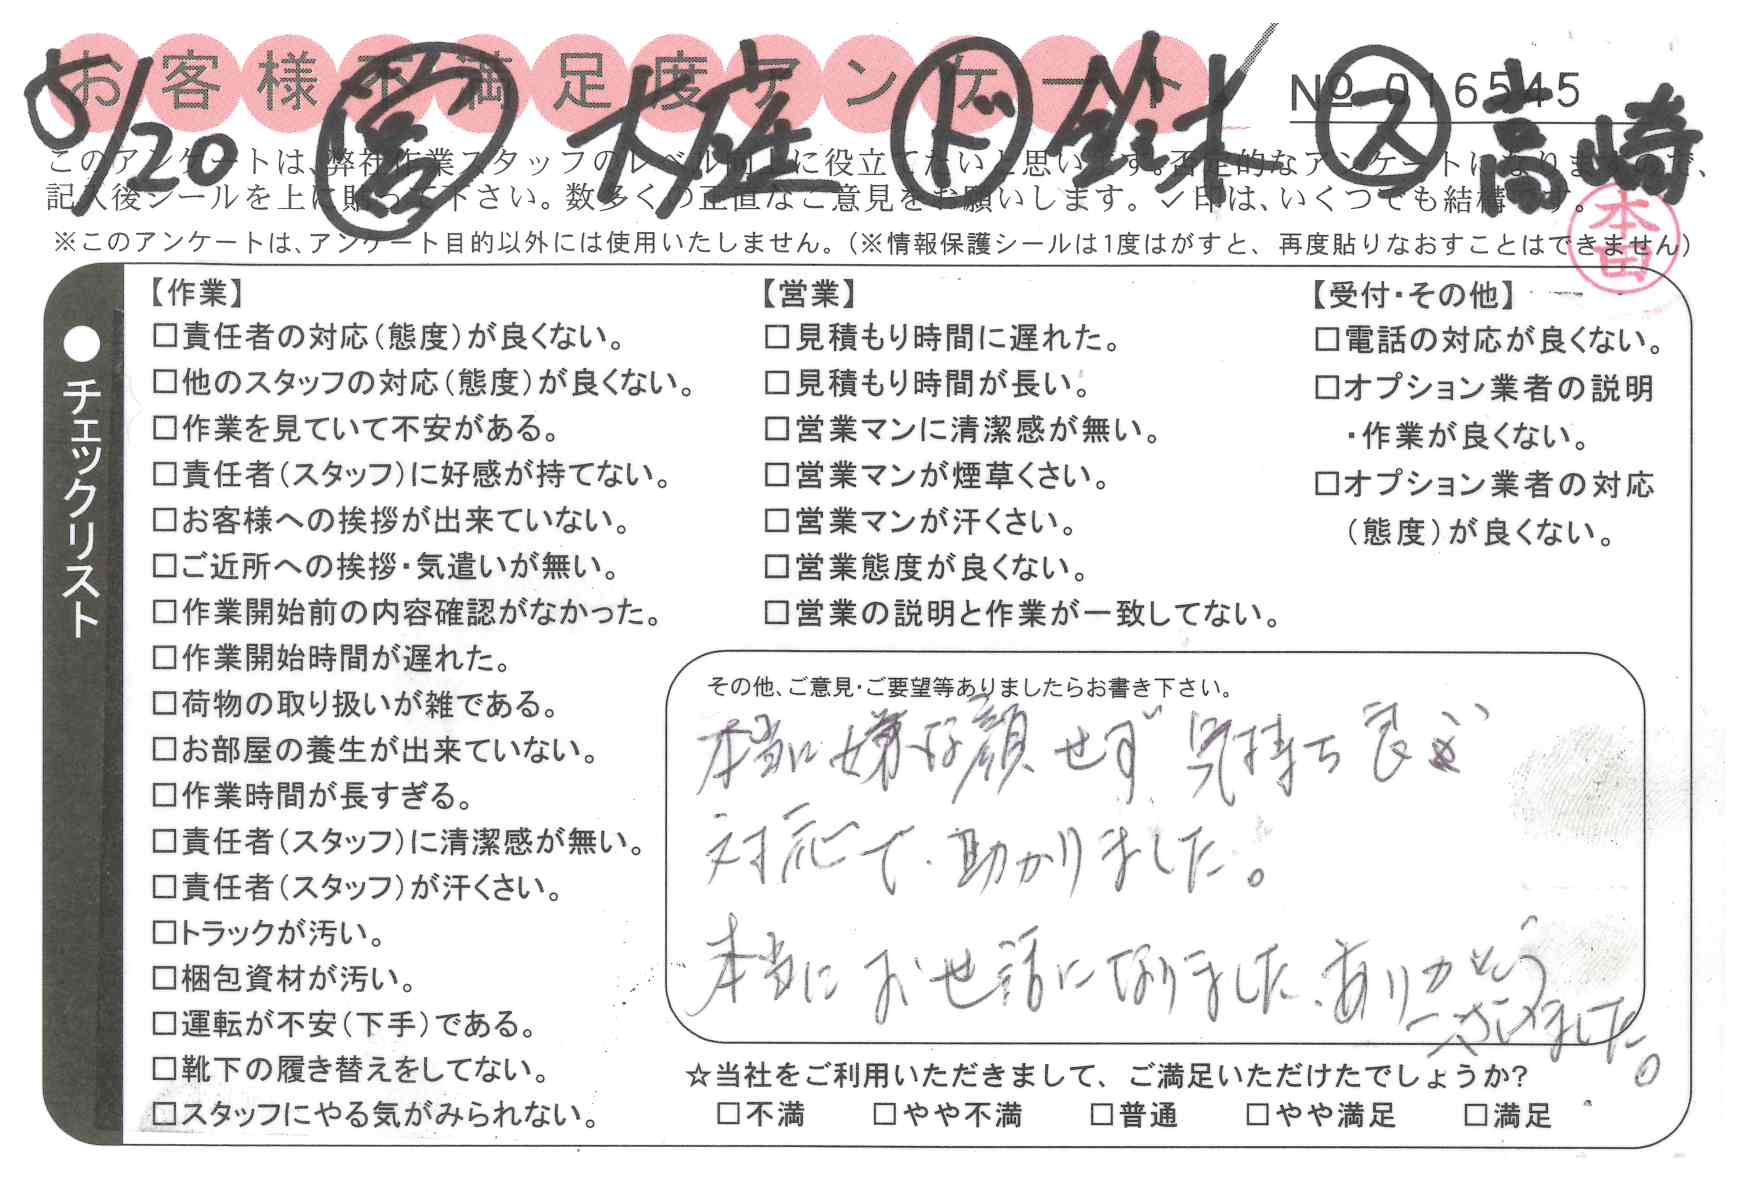 お客様不満足度アンケート
№ 016545
5/20 営 大庭 ド 鈴木 ス 高崎
このアンケートは、弊社作業スタッフのレベル向上に役立てたいと思います。否定的なアンケートになりますので、
記入後シールを上に貼って下さい。数多くの正直なご意見をお願いします。✓印は、いくつでも結構です。
※このアンケートは、アンケート目的以外には使用いたしません。(※情報保護シールは1度はがすと、再度貼りなおすことはできません)
本田
●チェックリスト
【作業】
□責任者の対応(態度)が良くない。
□他のスタッフの対応(態度)が良くない。
□作業を見ていて不安がある。
□責任者(スタッフ)に好感が持てない。
□お客様への挨拶が出来ていない。
□ご近所への挨拶・気遣いが無い。
□作業開始前の内容確認がなかった。
□作業開始時間が遅れた。
□荷物の取り扱いが雑である。
□お部屋の養生が出来ていない。
□作業時間が長すぎる。
□責任者(スタッフ)に清潔感が無い。
□責任者(スタッフ)が汗くさい。
□トラックが汚い。
□梱包資材が汚い。
□運転が不安(下手)である。
□靴下の履き替えをしてない。
□スタッフにやる気がみられない。
【営業】
□見積もり時間に遅れた。
□見積もり時間が長い。
□営業マンに清潔感が無い。
□営業マンが煙草くさい。
□営業マンが汗くさい。
□営業態度が良くない。
□営業の説明と作業が一致してない。
【受付・その他】
□電話の対応が良くない。
□オプション業者の説明
・作業が良くない。
□オプション業者の対応
(態度)が良くない。
その他、ご意見・ご要望等ありましたらお書き下さい。
本当に嫌な顔せず気持ち良い
対応で、助かりました。
本当にお世話になりました。ありがとう
ございました。
☆当社をご利用いただきまして、ご満足いただけたでしょうか?
□不満 □やや不満 □普通 □やや満足 □満足